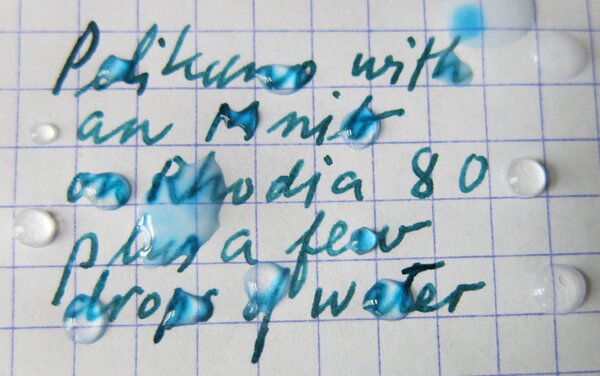 Pelikano with
an M nib
on Rhodia 80
plus a few
drops of water